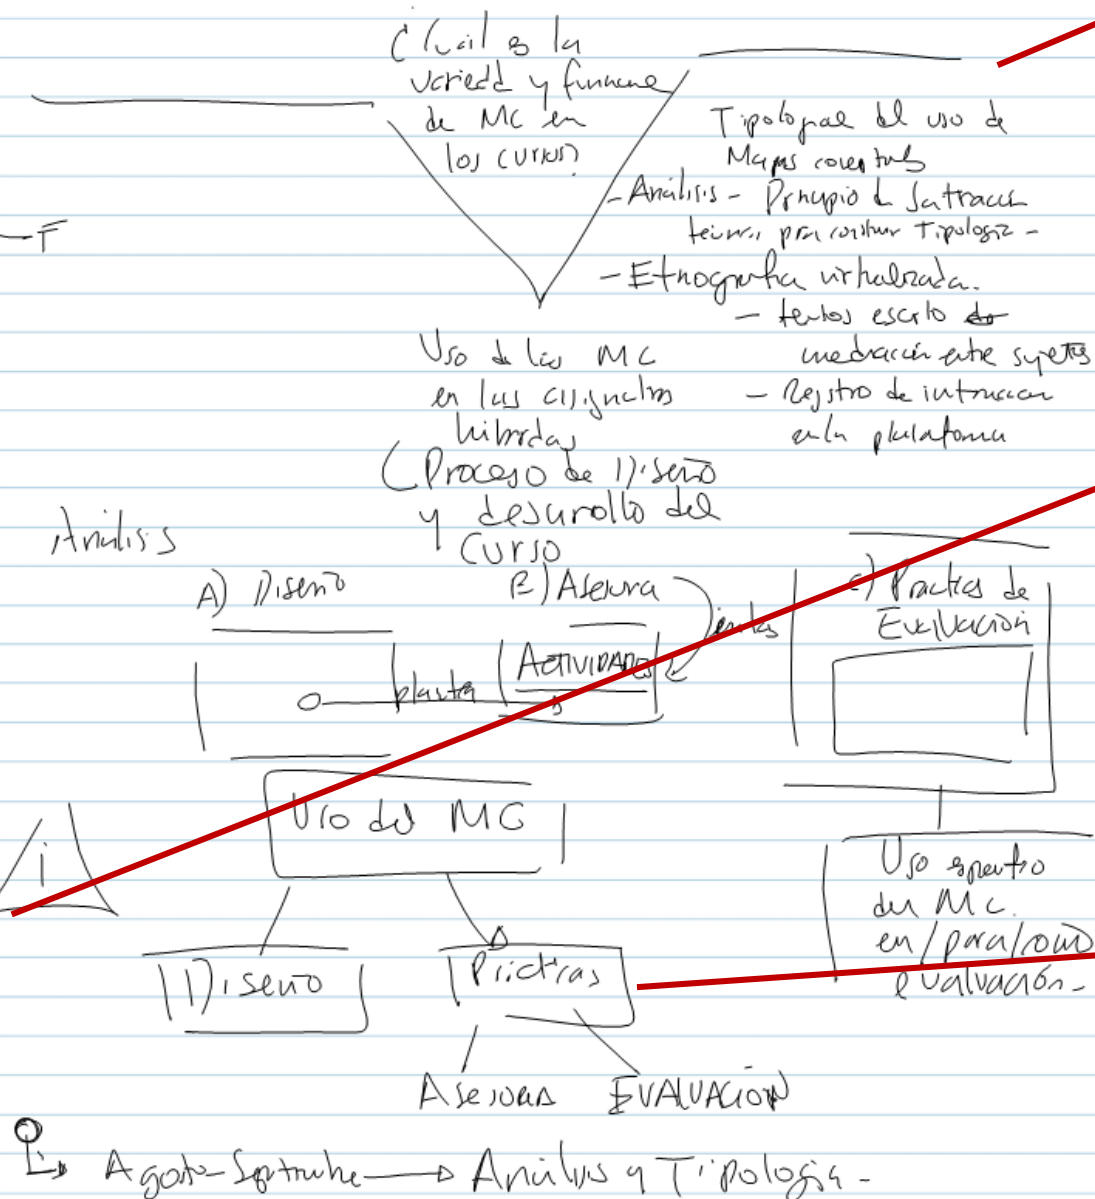 ¿Cuál es la
variedd y funcione
de MC en
los cursos?
Tipologiae del uso de
Mapas conceptuales
- Análisis - Principio de Saturación
para construir Tipología -
- Etnografía virtualizada.
- textos escrito
mediación entre sujetos
- Registro de interaccion
en la plataforma
F
Uso de los MC
en las asignaturas
híbridas
(Proceso de Diseño
y desarrollo del
Curso
Análisis
A) Diseño
B) Asesoria
C) Practicas de
Evaluación
plasta
ACTIVIDADES
Uso del MC
i
Uso especifico
del MC.
en/para/como
evaluación-
Diseño
Prácticas
Asesoria
EVALUACIÓN
Agosto-Septiembre → Análisis y Tipologia -